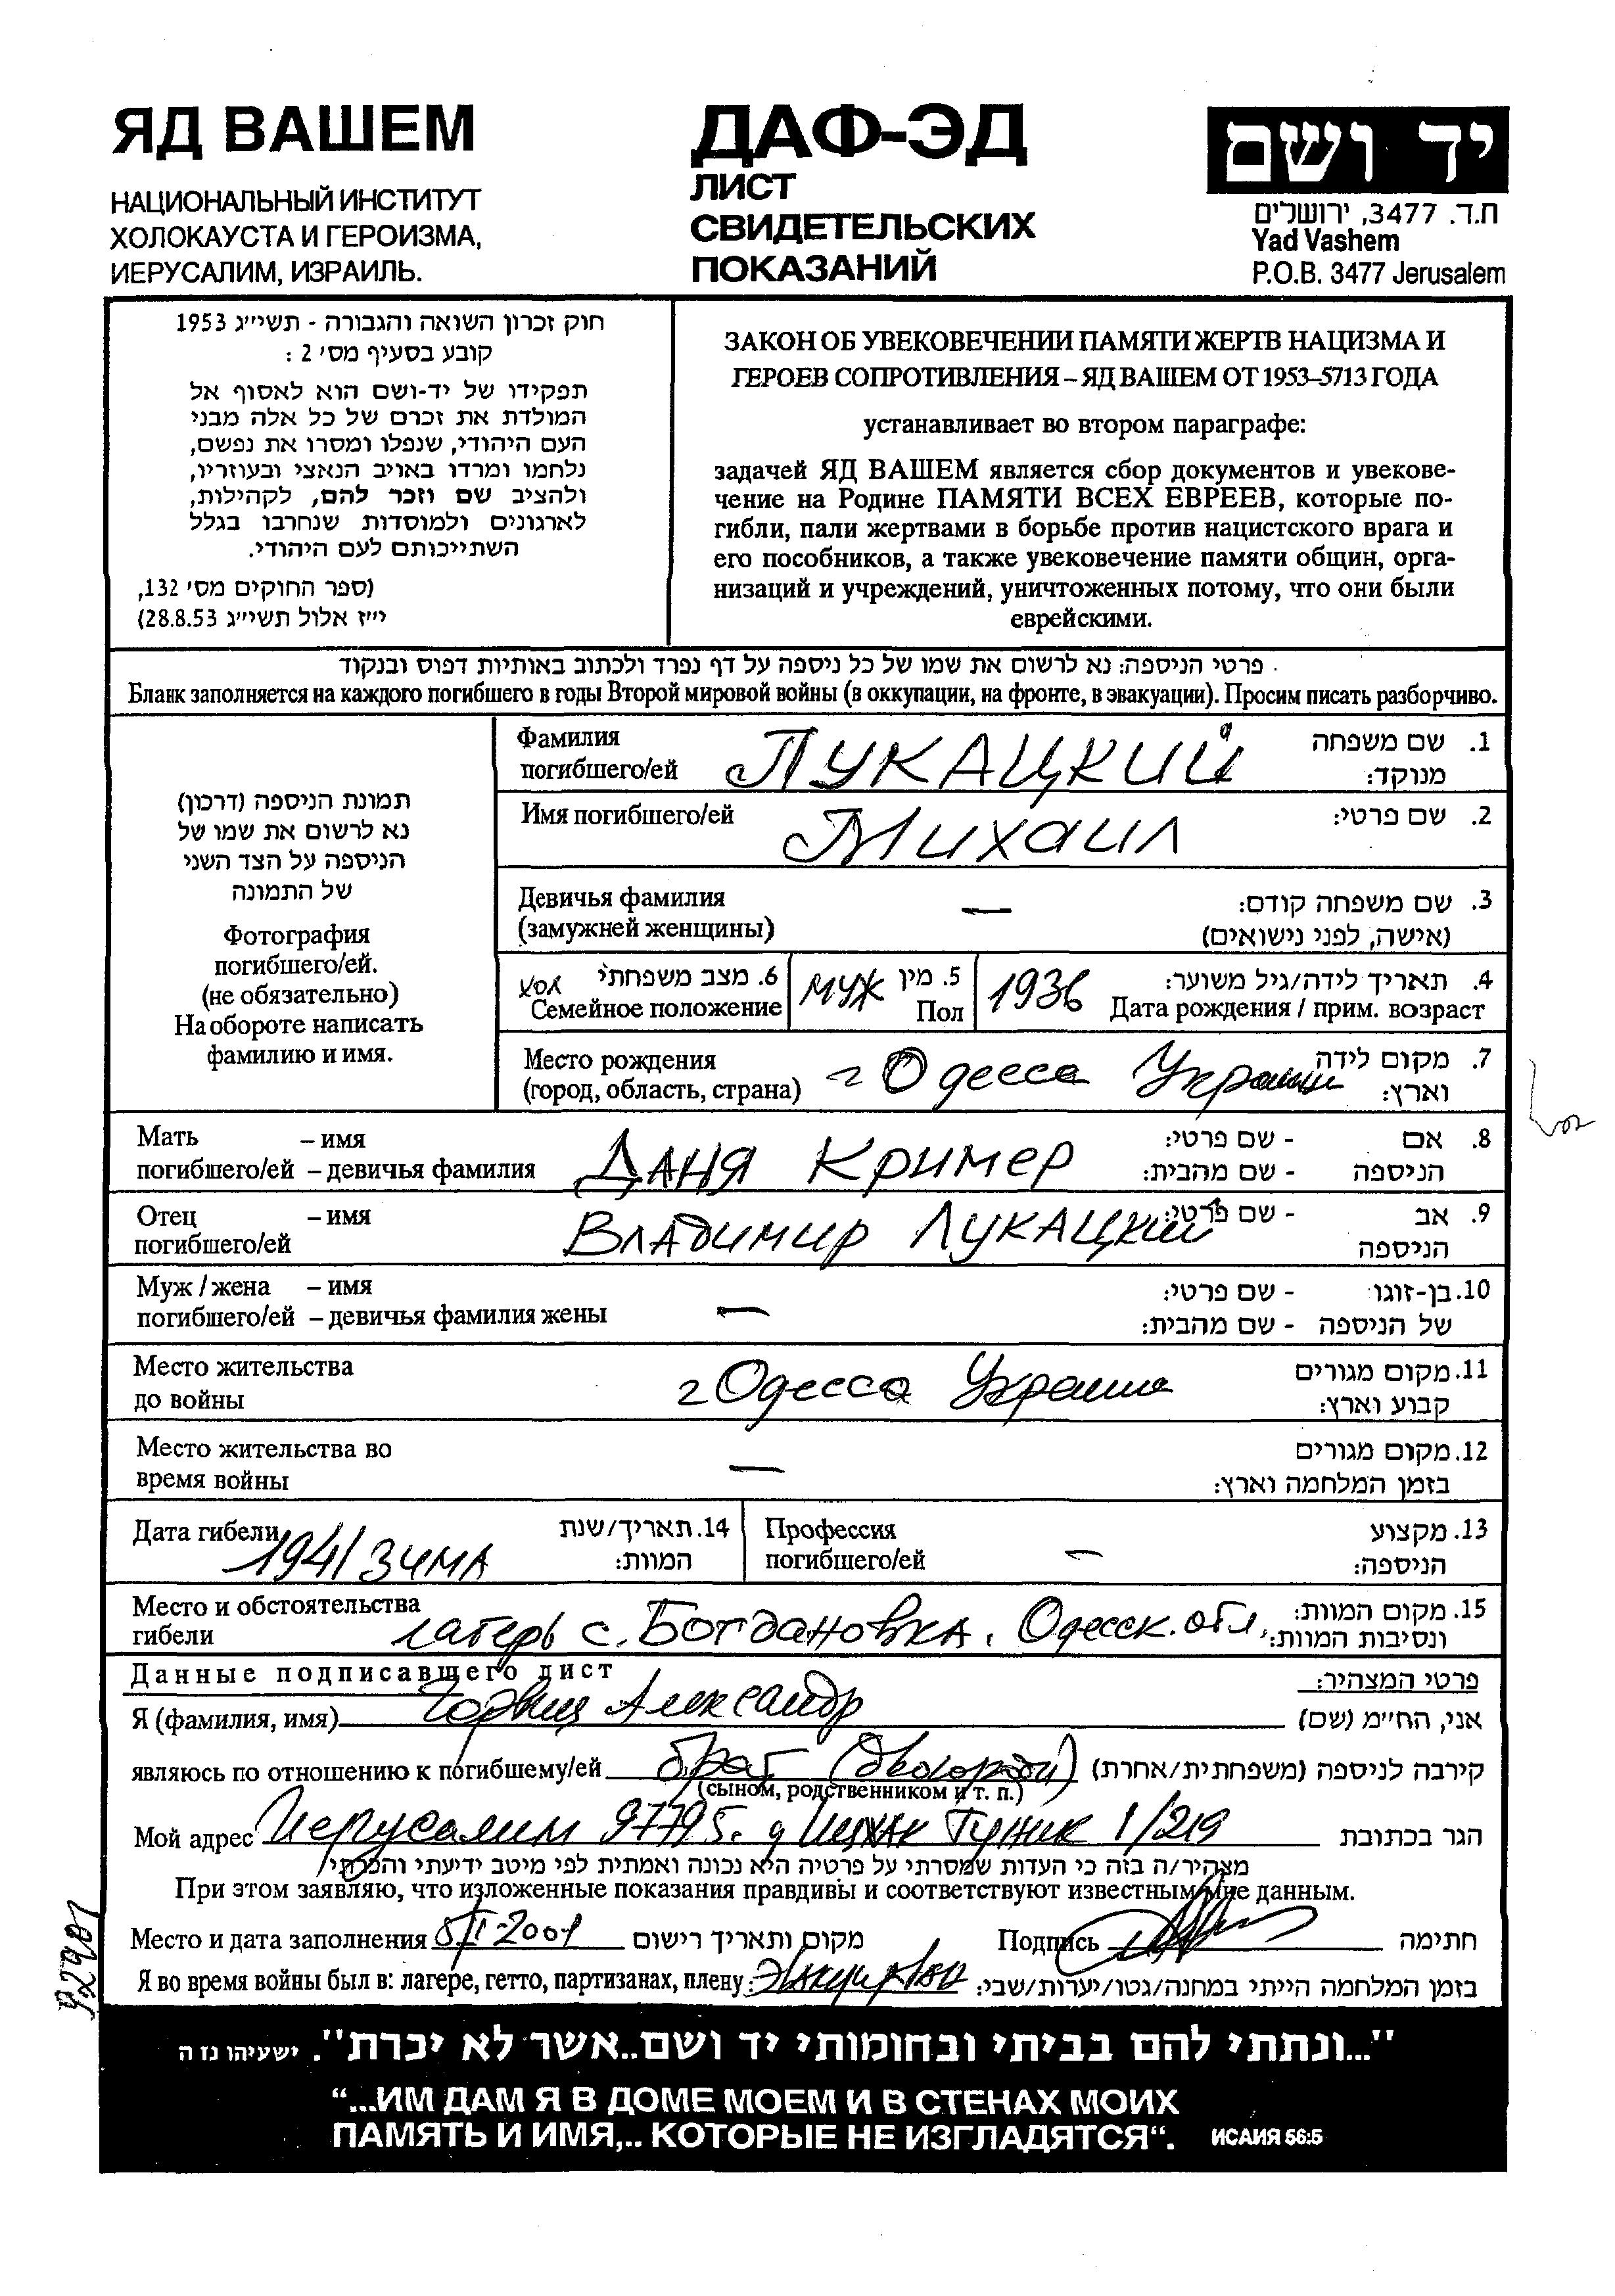 ЯД ВАШЕМ
НАЦИОНАЛЬНЫЙ ИНСТИТУТ
ХОЛОКАУСТА И ГЕРОИЗМА,
ИЕРУСАЛИМ, ИЗРАИЛЬ.
ДАФ-ЭД
ЛИСТ
СВИДЕТЕЛЬСКИХ
ПОКАЗАНИЙ
יד ושם
ת.ד. 3477, ירושלים
Yad Vashem
P.O.B. 3477 Jerusalem
חוק זכרון השואה והגבורה - תשי״ג 1953
קובע בסעיף מס׳ 2 :
תפקידו של יד-ושם הוא לאסוף אל
המולדת את זכרם של כל אלה מבני
העם היהודי, שנפלו ומסרו את נפשם,
נלחמו ומרדו באויב הנאצי ובעוזריו,
ולהציב שם וזכר להם, לקהילות,
לארגונים ולמוסדות שנחרבו בגלל
השתייכותם לעם היהודי.
(ספר החוקים מס׳ 132,
י״ז אלול תשי״ג 28.8.53)
ЗАКОН ОБ УВЕКОВЕЧЕНИИ ПАМЯТИ ЖЕРТВ НАЦИЗМА И
ГЕРОЕВ СОПРОТИВЛЕНИЯ – ЯД ВАШЕМ ОТ 1953–5713 ГОДА
устанавливает во втором параграфе:
задачей ЯД ВАШЕМ является сбор документов и увекове-
чение на Родине ПАМЯТИ ВСЕХ ЕВРЕЕВ, которые по-
гибли, пали жертвами в борьбе против нацистского врага и
его пособников, а также увековечение памяти общин, орга-
низаций и учреждений, уничтоженных потому, что они были
еврейскими.
פרטי הניספה: נא לרשום את שמו של כל ניספה על דף נפרד ולכתוב באותיות דפוס ובנקוד
Бланк заполняется на каждого погибшего в годы Второй мировой войны (в оккупации, на фронте, в эвакуации). Просим писать разборчиво.
תמונת הניספה (דרכון)
נא לרשום את שמו של
הניספה על הצד השני
של התמונה
Фотография
погибшего/ей.
(не обязательно)
На обороте написать
фамилию и имя.
Фамилия ЛУКАЦКИЙ 1. שם משפחה
погибшего/ей מנוקד:
Имя погибшего/ей Михаил 2. שם פרטי:
Девичья фамилия — 3. שם משפחה קודם:
(замужней женщины) (אישה, לפני נישואים)
хол 6. מצב משפחתי МУЖ 5. מין 1936 4. תאריך לידה/גיל משוער:
Семейное положение Пол Дата рождения / прим. возраст
Место рождения г Одесса Украина 7. מקום לידה
(город, область, страна) וארץ:
Мать – имя Даня Кример - שם פרטי: 8. אם
погибшего/ей – девичья фамилия - שם מהבית: הניספה
Отец – имя Владимир Лукацкий - שם פרטי: 9. אב
погибшего/ей הניספה
Муж / жена – имя — - שם פרטי: 10. בן-זוגו
погибшего/ей – девичья фамилия жены - שם מהבית: של הניספה
Место жительства г Одесса Украина 11. מקום מגורים
до войны קבוע וארץ:
Место жительства во — 12. מקום מגורים
время войны בזמן המלחמה וארץ:
Дата гибели 1941 ЗИМА 14. תאריך/שנת
המוות:
Профессия — 13. מקצוע
погибшего/ей הניספה:
Место и обстоятельства лагерь с. Богдановка, Одесск. обл, 15. מקום המוות:
гибели ונסיבות המוות:
Данные подписавшего лист פרטי המצהיר:
Я (фамилия, имя) Александр אני, הח״מ (שם)
являюсь по отношению к погибшему/ей брат (двоюродн) קירבה לניספה (משפחתית/אחרת)
(сыном, родственником и т. п.)
Мой адрес Иерусалим 97795. Ицхак 1/219 הגר בכתובת
מצהיר/ה בזה כי העדות שמסרתי על פרטיה היא נכונה ואמתית לפי מיטב ידיעתי והכרתי
При этом заявляю, что изложенные показания правдивы и соответствуют известным мне данным.
Место и дата заполнения 2001 מקום ותאריך רישום Подпись חתימה
Я во время войны был в: лагере, гетто, партизанах, плену: בזמן המלחמה הייתי במחנה/גטו/יערות/שבי:
"...ונתתי להם בביתי ובחומותי יד ושם..אשר לא יכרת". ישעיהו נז ה
“...ИМ ДАМ Я В ДОМЕ МОЕМ И В СТЕНАХ МОИХ
ПАМЯТЬ И ИМЯ,.. КОТОРЫЕ НЕ ИЗГЛАДЯТСЯ“. ИСАИЯ 56:5